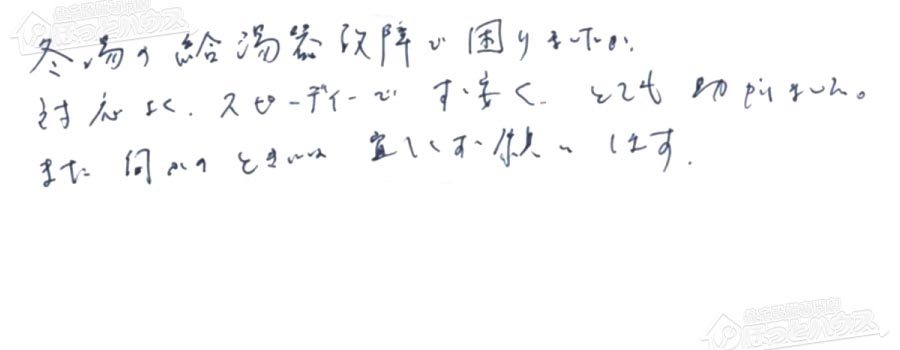 冬場の給湯器故障で困りましたが、
対応よく、スピーディーで お安く、とても助かりました。
また何かのときには宜しくお願いします。
ほっとハウス
ほっとハウス